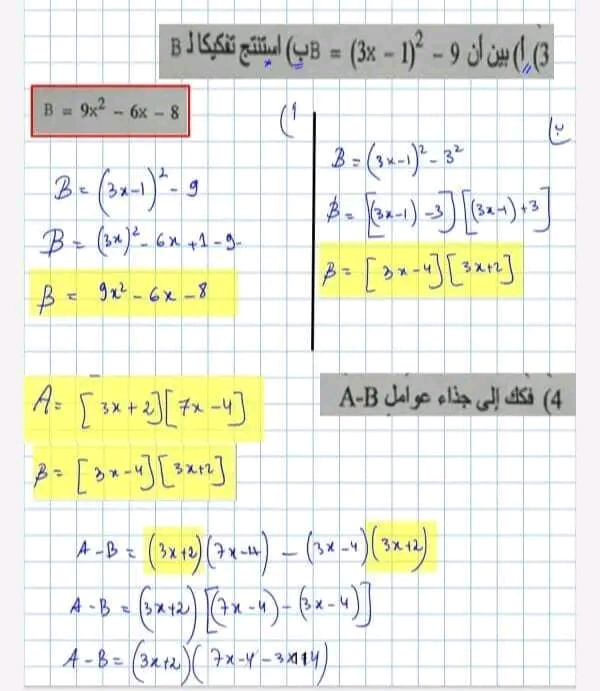 3) أ) بين أن B = (3x − 1)² − 9 ب) استنتج تفكيكا لـ B
B = 9x² − 6x − 8
أ)
B = (3x-1)² - 9
B = (3x)² - 6x + 1 - 9
B = 9x² - 6x - 8
ب)
B = (3x-1)² - 3²
B = [(3x-1) - 3][(3x-1) + 3]
B = [3x-4][3x+2]
4) فكك إلى جذاء عوامل A-B
A = [3x+2][7x-4]
B = [3x-4][3x+2]
A - B = (3x+2)(7x-4) - (3x-4)(3x+2)
A - B = (3x+2)[(7x-4) - (3x-4)]
A - B = (3x+2)(7x-4-3x+4)